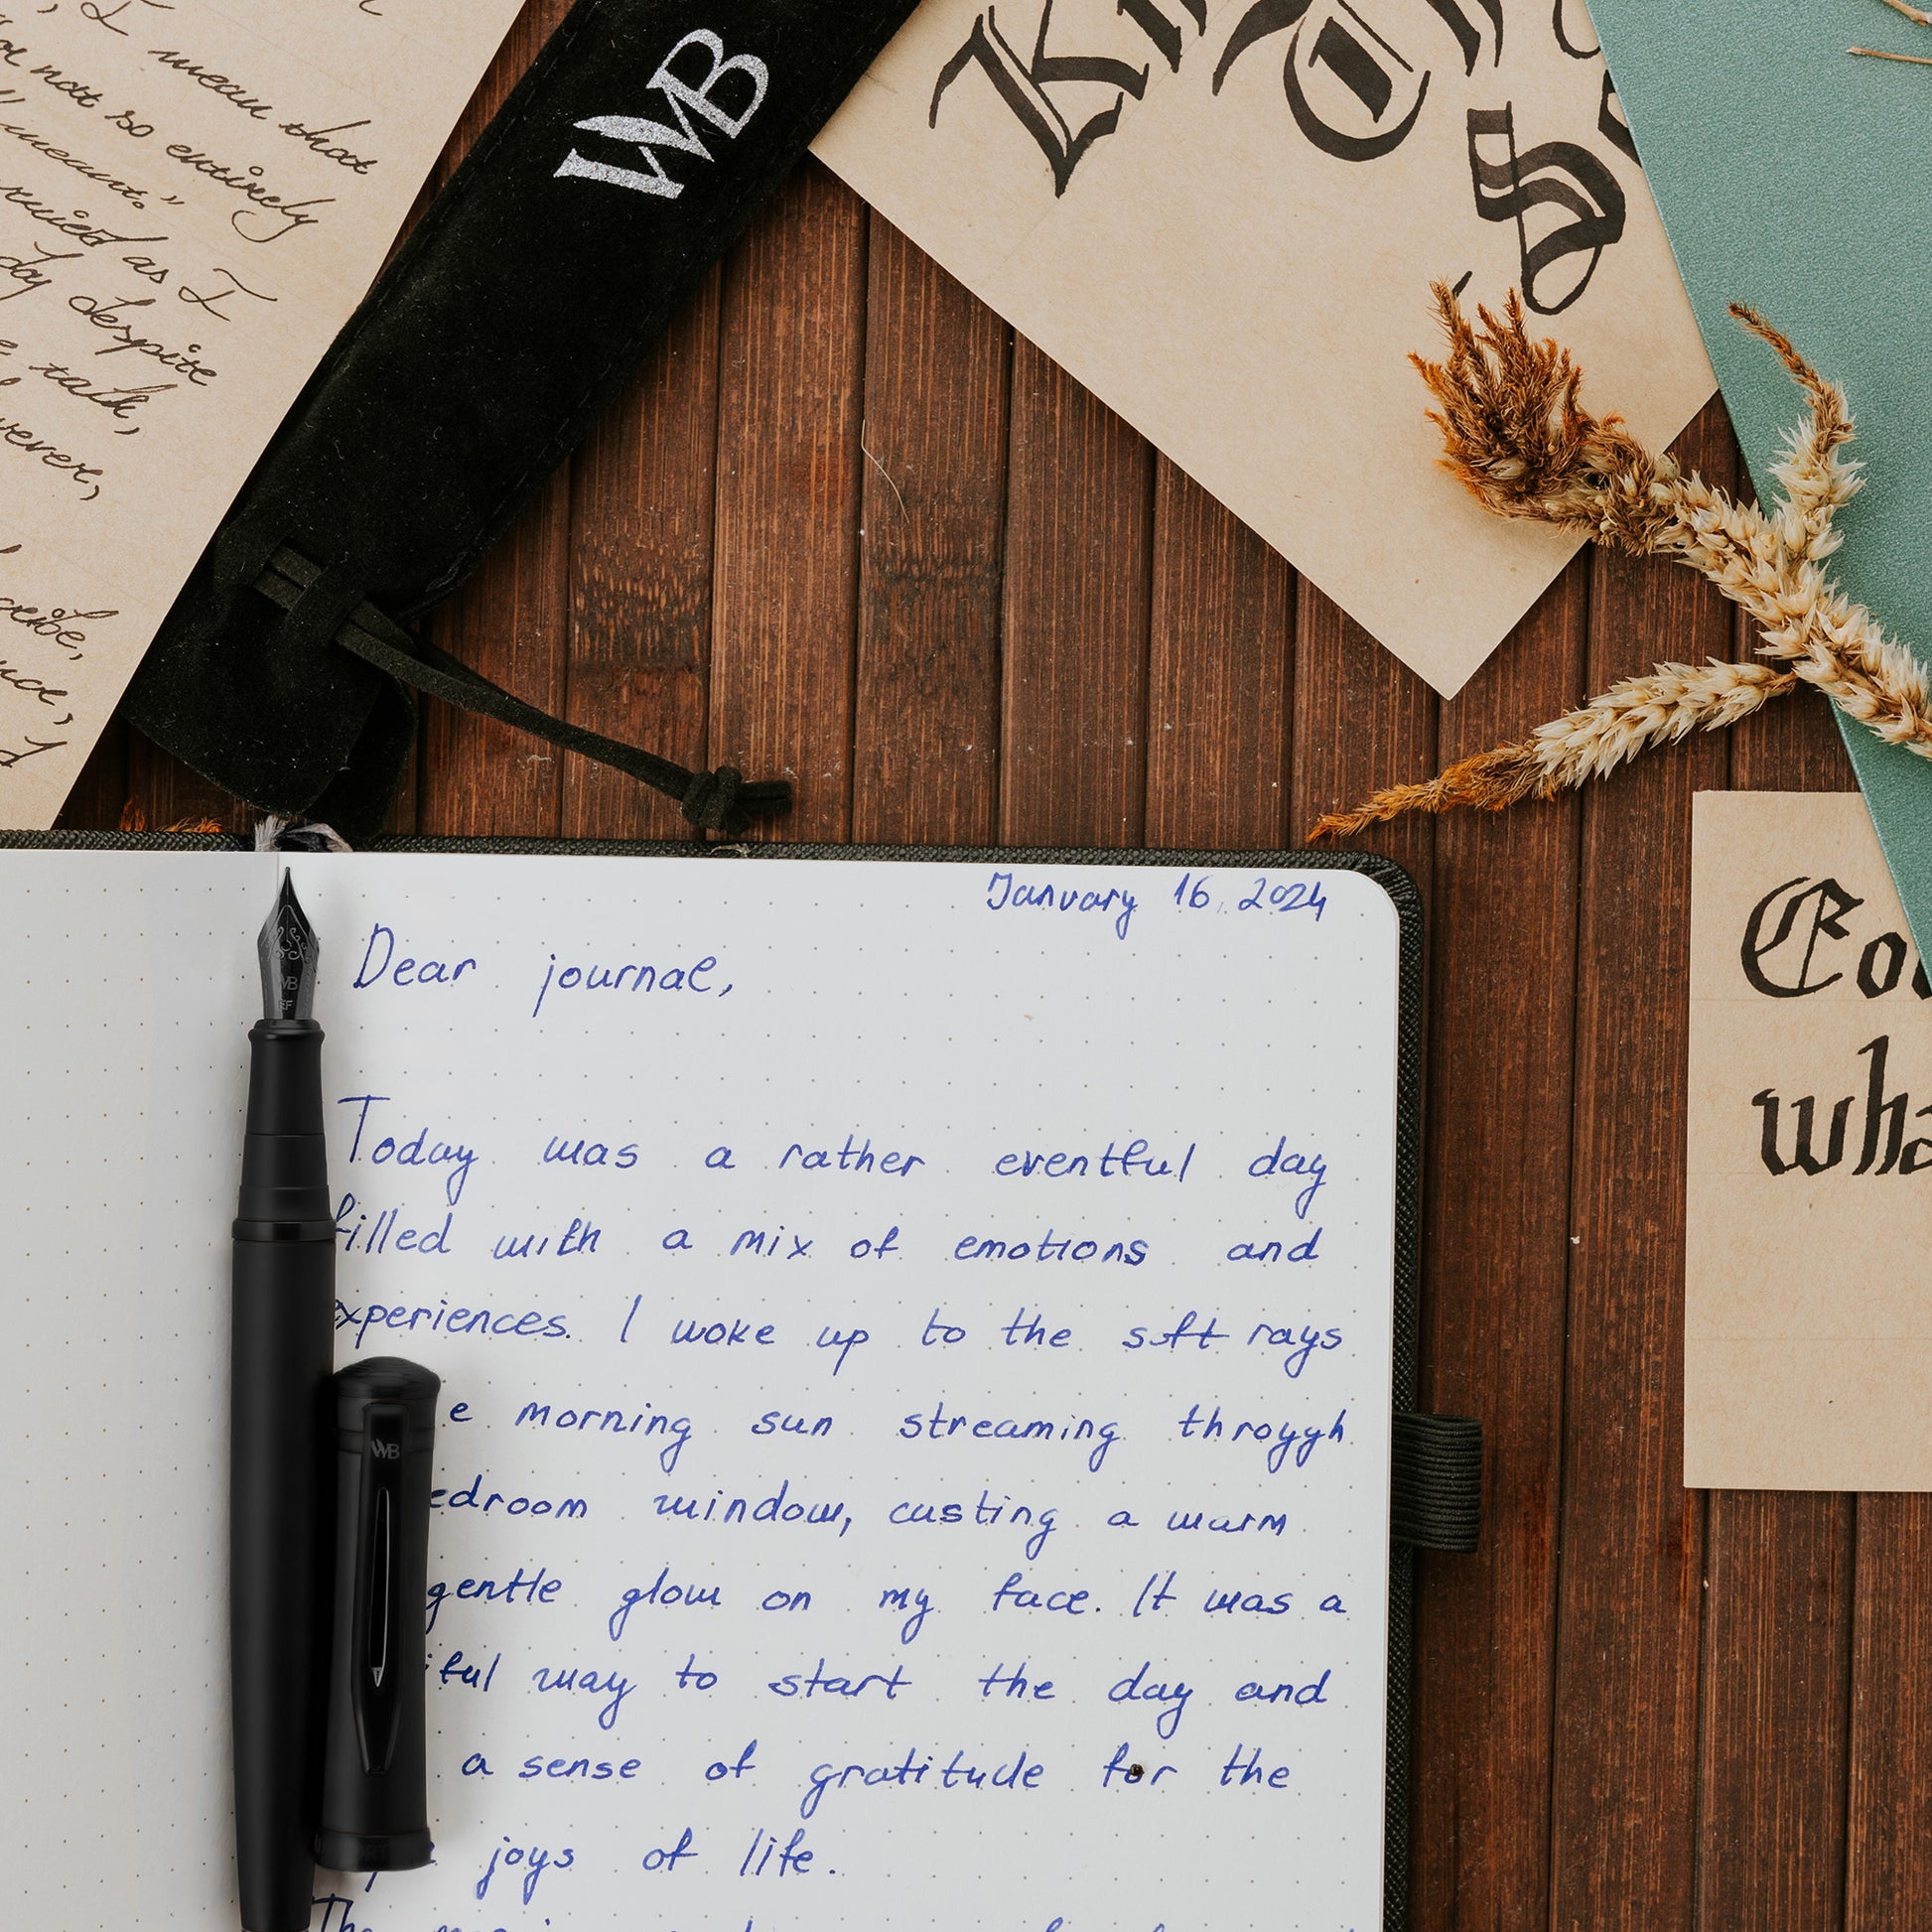 I mean that
not so entirely
meant."
as I
day despite
talk,
WB
S
January 16, 2024
Dear journal,
Today was a rather eventful day
filled with a mix of emotions and
experiences. I woke up to the soft rays
e morning sun streaming throygh
edroom window, casting a warm
gentle glow on my face. It was a
iful way to start the day and
a sense of gratitude for the
joys of life.
The
WB
EF
WB